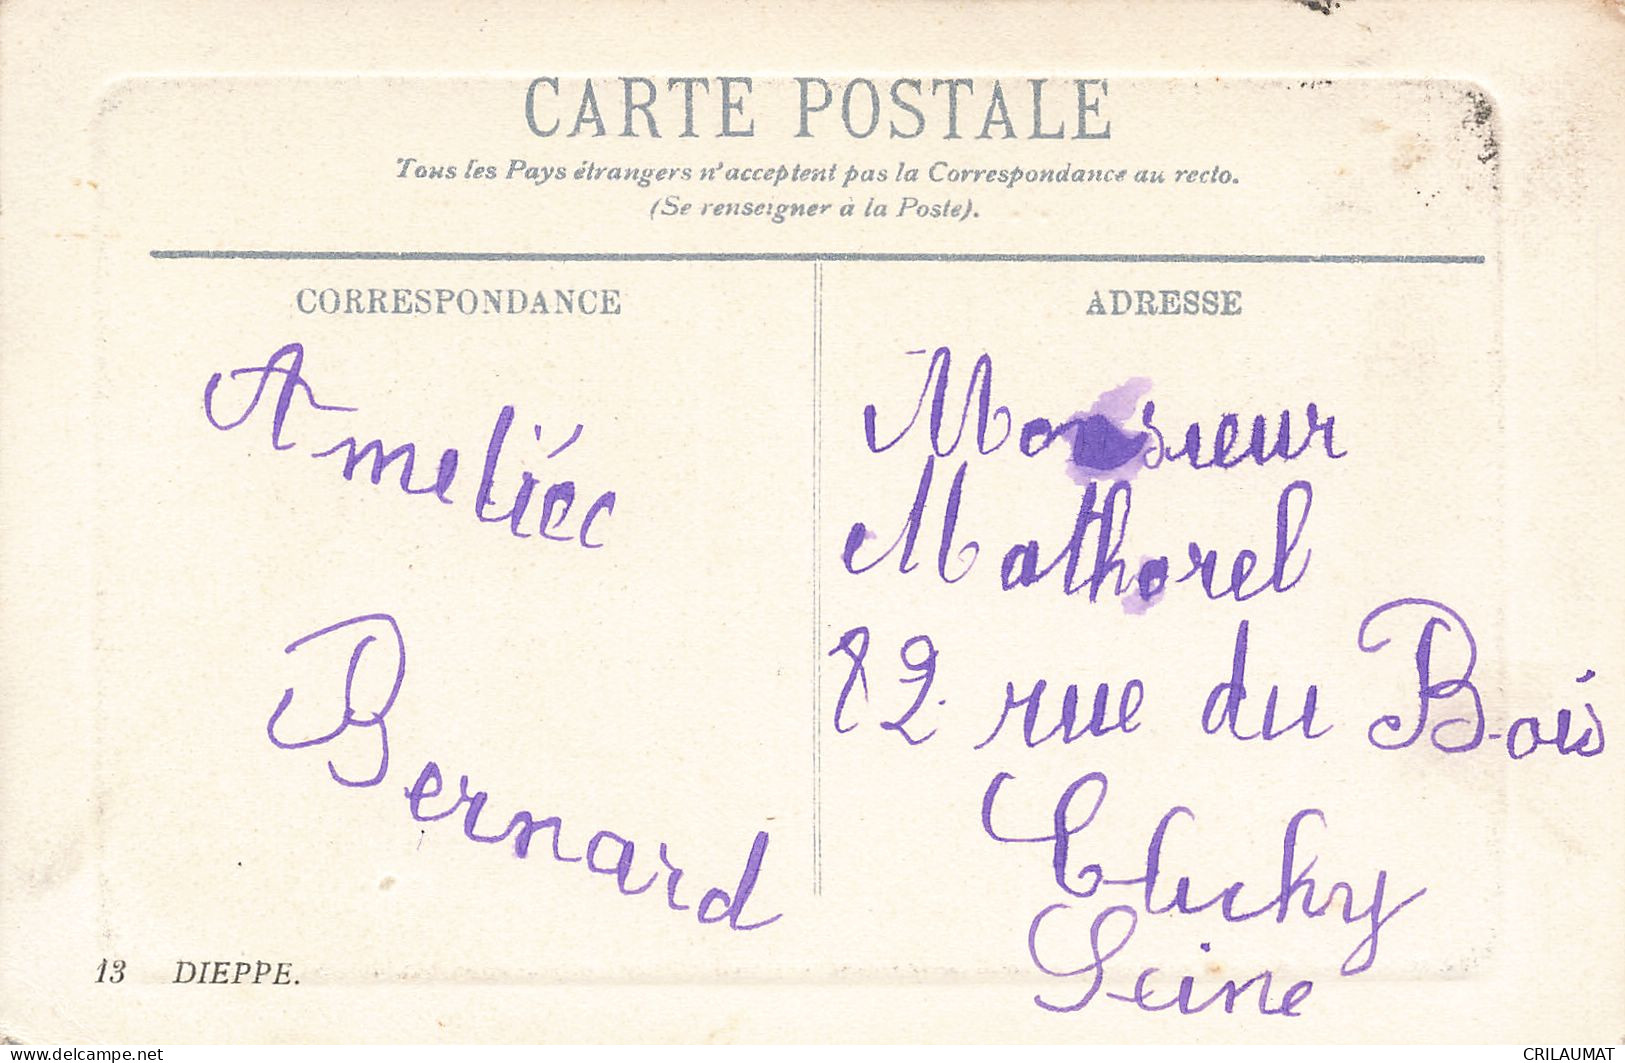 CARTE POSTALE
Tous les Pays étrangers n'acceptent pas la Correspondance au recto.
(Se renseigner à la Poste).
CORRESPONDANCE
ADRESSE
Bernard
Monsieur
Mathorel
82 rue du Bois
Clichy
Seine
13 DIEPPE.
https://www.delcampe.net
CRILAUMAT